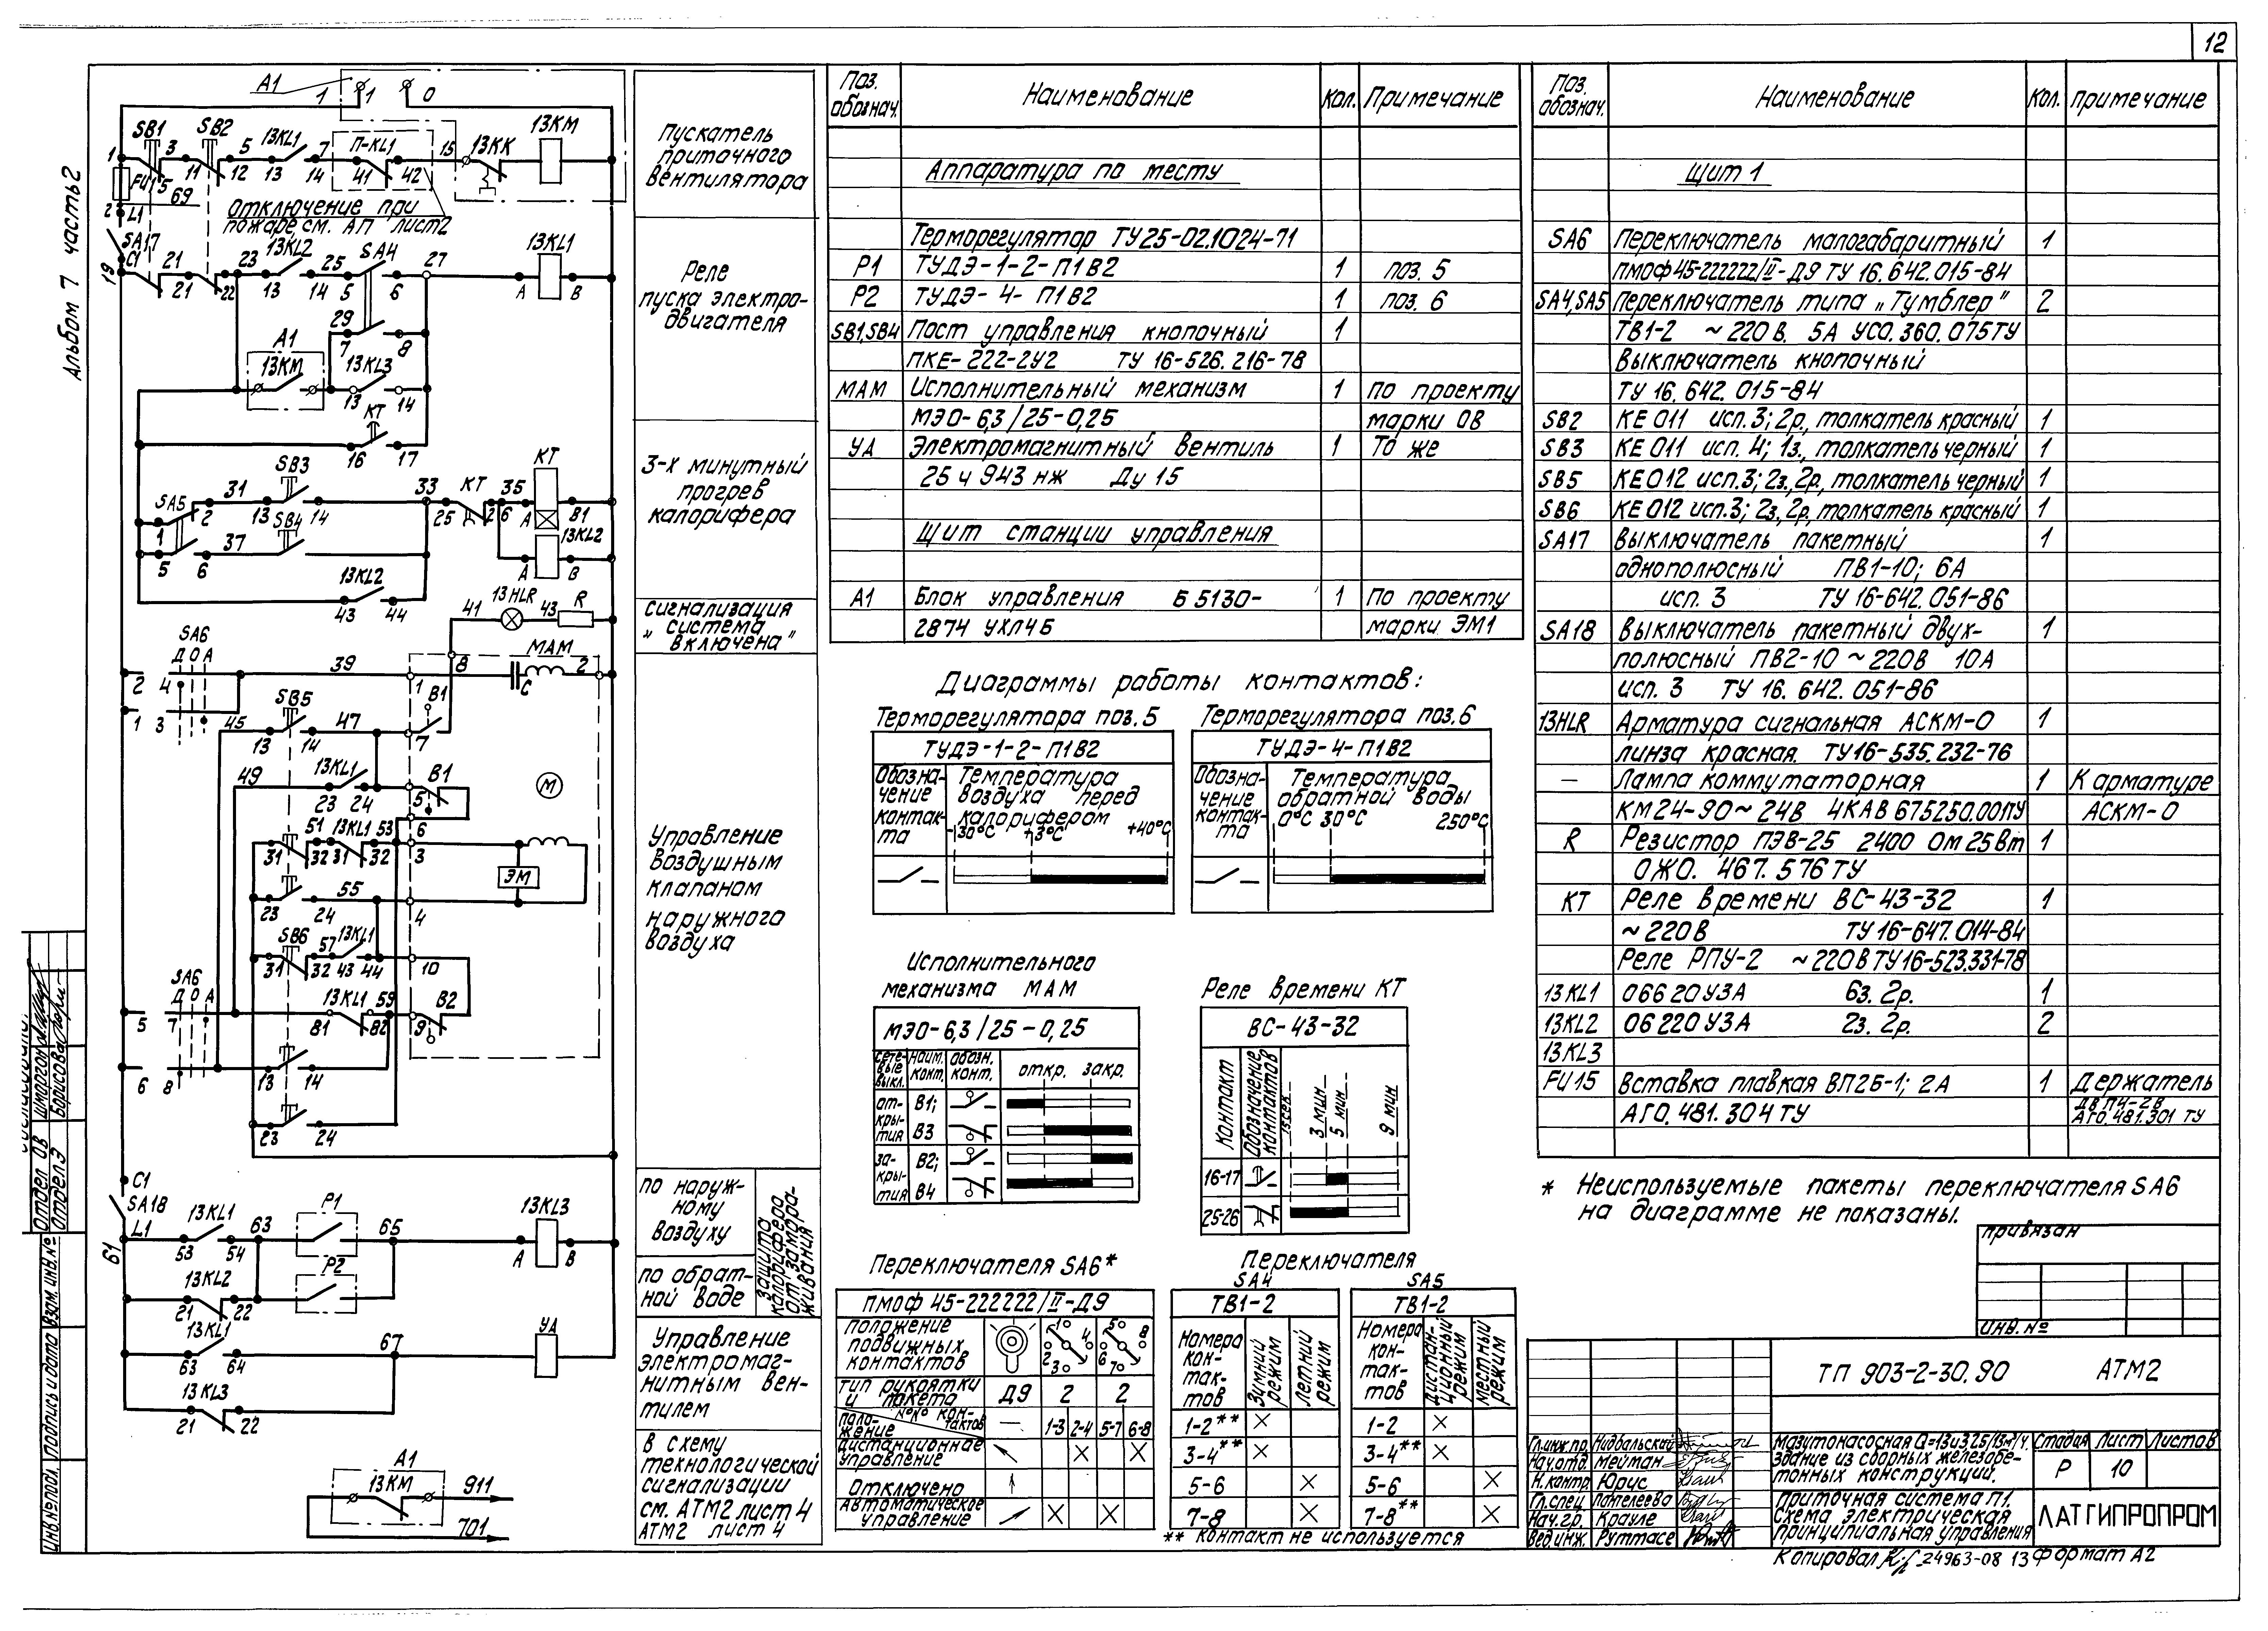 12
Альбом 7 часть 2
А1
1 1 0
SB1 3 SB2 5 13KL1 7 П-KL1 15 13КК 13КМ
1 11 12 13 14 41 42
FU15 5 69
2 L1
Отключение при
пожаре, см. АП лист2
SA17
C1
19 21 23 13KL2 25 SA4 27 13KL1
21 22 13 14 5 6 А В
29
7 8
А1
13КМ 13KL3
13 14
КТ
16 17
SB3
31 33 КТ 35 КТ
SA5 2 13 14 25 26 А В1
1 SB4 13KL2
37
5 6 А В
13KL2
43 44
13HLR
41 43 R
SA6
Д О А
39 8 МАМ 2
2 4 1 С
SB5 В1
1 3 45 47
13 14 7
13KL1
49 В1
23 24 5 М
51 13KL1 53 6
31 32 31 32 3
ЭМ
55
23 24 4
SB6 57 13KL1
31 32 43 44 10
SA6
Д О А 13KL1 59 В2
5 7 81 82 9
6 8 13 14
23 24
C1
SA18
L1
61
13KL1 63 Р1 65 13KL3
53 54 А В
13KL2 Р2
21 22
13KL1 67 УА
63 64
13KL3
21 22
А1
13КМ 911
701
Пускатель
приточного
вентилятора
Реле
пуска электро-
двигателя
3-х минутный
прогрев
калорифера
Сигнализация
„ система
включена "
Управление
воздушным
клапаном
наружного
воздуха
по наруж-
ному
воздуху
по обрат-
ной воде
Защита
калорифера
от замора-
живания
Управление
электромаг-
нитным вен-
тилем
В схему
технологической
сигнализации
см. АТМ2 лист 4
АТМ2 лист 4
Поз. обознач. Наименование Кол. Примечание
Аппаратура по месту
Терморегулятор ТУ25-02.1024-71
Р1 ТУДЭ-1-2-П1В2 1 поз. 5
Р2 ТУДЭ-4-П1В2 1 поз. 6
SB1,SB4 Пост управления кнопочный 1
ПКЕ-222-2У2 ТУ 16-526.216-78
МАМ Исполнительный механизм 1 По проекту
МЭО-6,3/25-0,25 марки ОВ
УА Электромагнитный вентиль 1 То же
25 ч 943 нж Ду 15
Щит станции управления
А1 Блок управления Б5130- 1 По проекту
2874 УХЛ4Б марки ЭМ1
Диаграммы работы контактов:
Терморегулятора поз. 5
ТУДЭ-1-2-П1В2
Обозна-
чение
контак-
та
Температура
воздуха перед
калорифером
-30°С +3°С +40°С
Терморегулятора поз.6
ТУДЭ-4-П1В2
Обозна-
чение
контак-
та
Температура
обратной воды
0°С 30°С 250°С
Исполнительного
механизма МАМ
МЭО-6,3/25-0,25
Сете-
вые
выкл.
Наим.
конт.
Обозн.
конт.
откр. закр.
от-
кры-
тия
В1;
В3
за-
кры-
тия
В2;
В4
Реле времени КТ
ВС-43-32
Контакт
Обозначение
контактов
15 сек
3 мин
5 мин
9 мин
16-17
25-26
Переключателя SA6*
ПМОФ 45-222222/II-Д9
Положение
подвижных
контактов
1 4 2 3 5 8 6 7
Тип рукоятки
и пакета Д9 2 2
Поло-
жение №№ кон-
тактов — 1-3 2-4 5-7 6-8
Дистанционное
управление X X
Отключено
Автоматическое
управление X X
Переключателя
SA4 SA5
ТВ1-2
Номера
кон-
так-
тов
Зимний
режим
Летний
режим
1-2** X
3-4** X
5-6 X
7-8 X
ТВ1-2
Номера
кон-
так-
тов
Дистан-
ционный
режим
Местный
режим
1-2 X
3-4** X
5-6 X
7-8** X
** контакт не используется
Поз. обознач. Наименование Кол. Примечание
Щит 1
SA6 Переключатель малогабаритный 1
ПМОФ45-222222/II-Д9 ТУ 16.642.015-84
SA4,SA5 Переключатель типа „Тумблер" 2
ТВ1-2 ~220 В. 5А УСО.360.075ТУ
Выключатель кнопочный
ТУ 16.642.015-84
SB2 КЕ 011 исп. 3; 2р., толкатель красный 1
SB3 КЕ 011 исп. 4; 1з., толкатель черный 1
SB5 КЕ 012 исп.3; 2з., 2р., толкатель черный 1
SB6 КЕ 012 исп.3; 2з., 2р., толкатель красный 1
SA17 Выключатель пакетный 1
однополюсный ПВ1-10; 6А
исп. 3 ТУ 16-642.051-86
SA18 Выключатель пакетный двух- 1
полюсный ПВ2-10 ~220В 10А
исп. 3 ТУ 16.642.051-86
13HLR Арматура сигнальная АСКМ-0 1
линза красная. ТУ16-535.232-76
— Лампа коммутаторная 1 К арматуре
КМ24-90~24В 4КАВ675250.00ПУ АСКМ-0
R Резистор ПЭВ-25 2400 Ом 25Вт 1
ОЖО. 467. 576 ТУ
КТ Реле времени ВС-43-32 1
~220В ТУ 16-647.014-84
Реле РПУ-2 ~220В ТУ16-523.331-78
13KL1 06620У3А 6з. 2р. 1
13KL2 06220У3А 2з. 2р. 2
13KL3
FU15 Вставка плавкая ВП2Б-1; 2А 1 Держатель
АГО.481.304 ТУ ДВП4-2В
АГО.481.301 ТУ
* Неиспользуемые пакеты переключателя SA6
на диаграмме не показаны.
Привязан
Инв. №
ТП 903-2-30.90 АТМ2
Гл.инж.пр. Нидбальский
Нач.отд. Мейман
Н.контр. Юрус
Гл.спец. Пантелеева
Нач.гр. Крауле
Вед.инж. Руттасе
Мазутонасосная Q=13и3.25/13м³/ч.
Здание из сборных железобе-
тонных конструкций.
Стадия Лист Листов
Р 10
Приточная система П1.
Схема электрическая
принципиальная управления
ЛАТГИПРОПРОМ
Копировал 24963-08 13 Формат А2
Отдел ОВ
Отдел Э Борисова
Взам. инв.№
Подпись и дата
Инв.№подл.